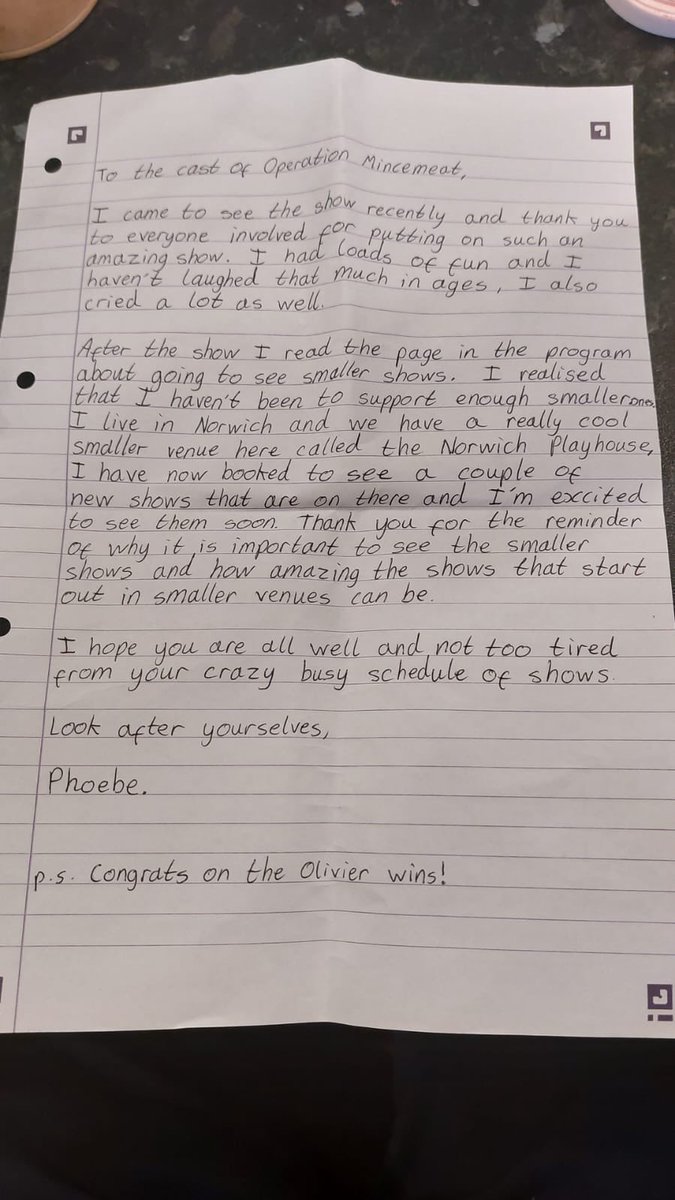 To the cast of Operation Mincemeat,
I came to see the show recently and thank you
to everyone involved for putting on such an
amazing show. I had loads of fun and I
haven't laughed that much in ages, I also
cried a lot as well.
After the show I read the page in the program
about going to see smaller shows. I realised
that I haven't been to support enough smaller ones.
I live in Norwich and we have a really cool
smaller venue here called the Norwich Playhouse,
I have now booked to see a couple of
new shows that are on there and I'm excited
to see them soon. Thank you for the reminder
of why it is important to see the smaller
shows and how amazing the shows that start
out in smaller venues can be.
I hope you are all well and not too tired
from your crazy busy schedule of shows.
Look after yourselves,
Phoebe.
p.s. Congrats on the Olivier wins!